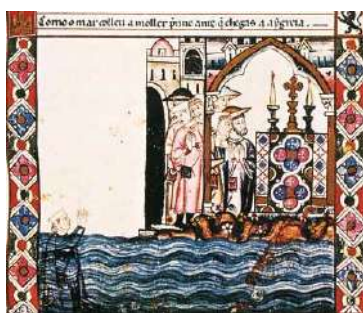 Como o mar colleu a moller prene ante q̃ chegas a a ygreia.